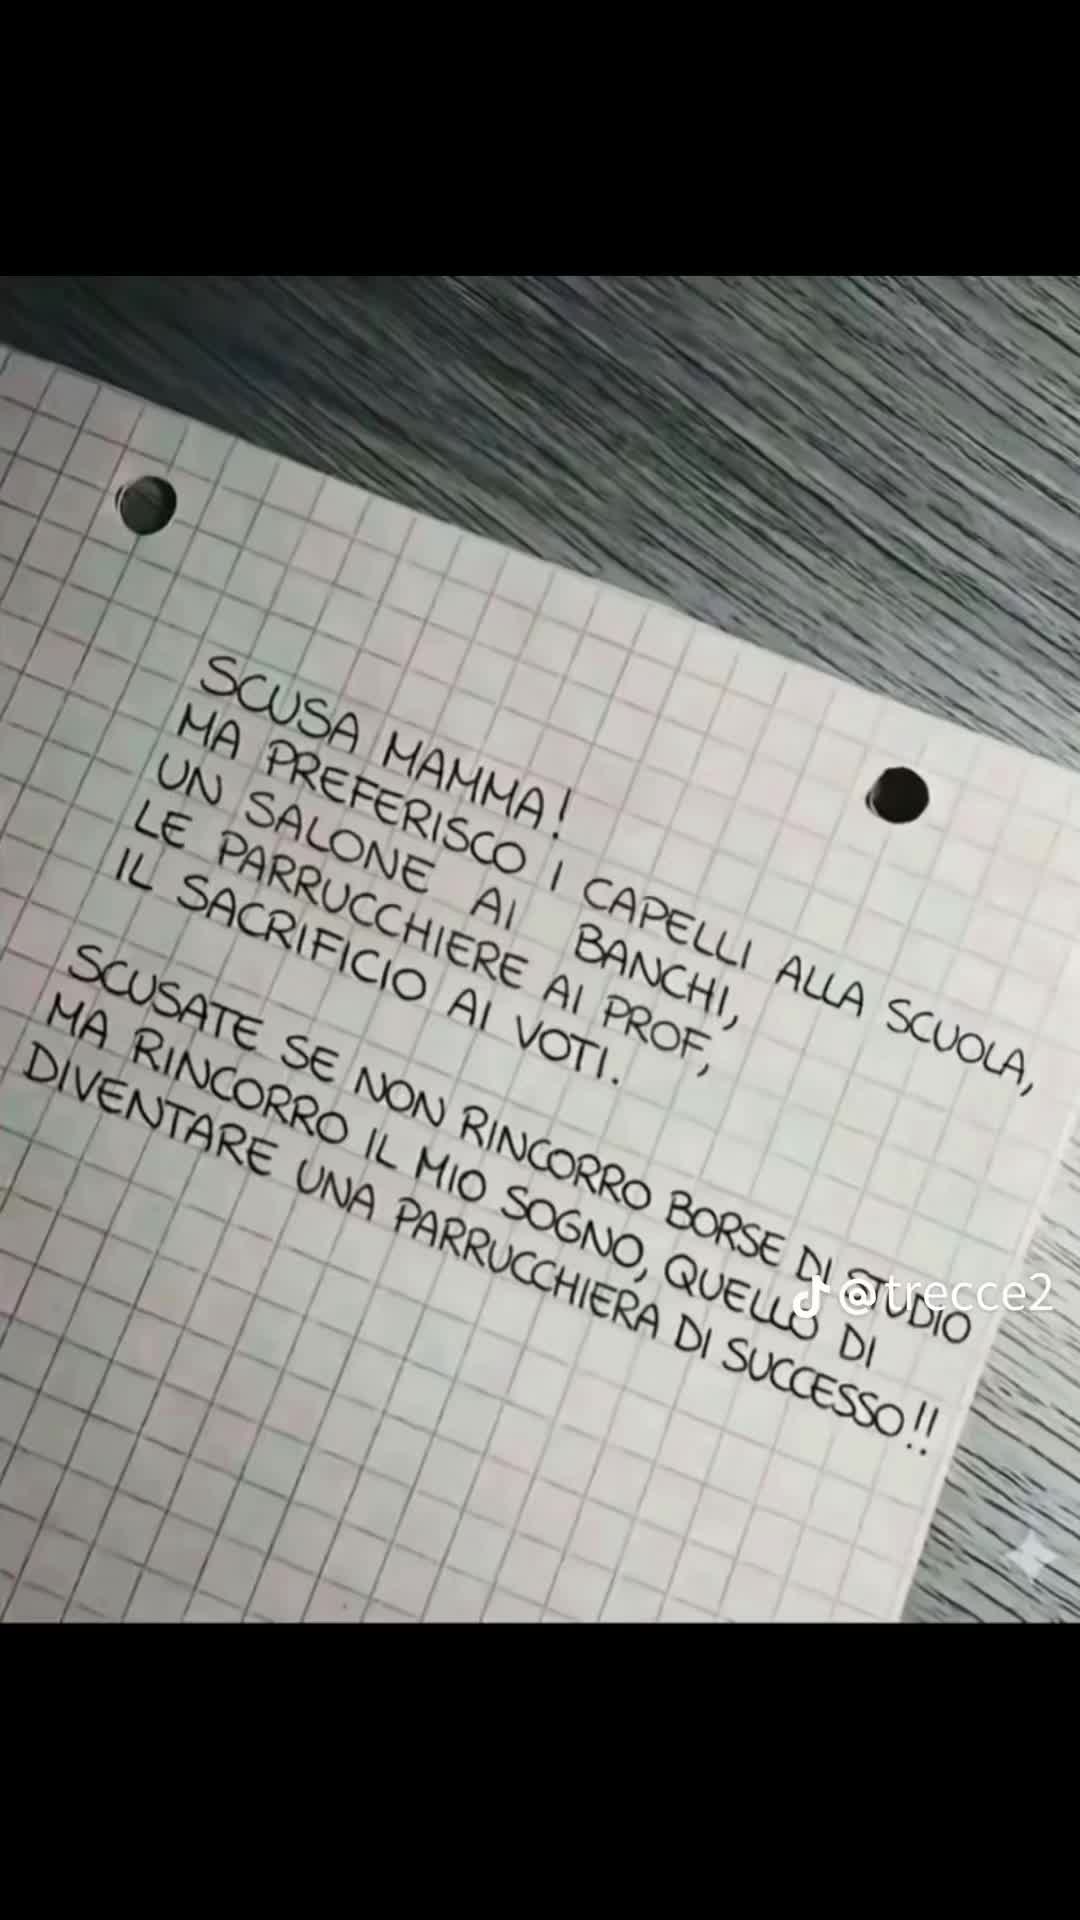 SCUSA MAMMA!
MA PREFERISCO I CAPELLI ALLA SCUOLA,
UN SALONE AI BANCHI,
LE PARRUCCHIERE AI PROF,
IL SACRIFICIO AI VOTI.
SCUSATE SE NON RINCORRO BORSE DI STUDIO
MA RINCORRO IL MIO SOGNO, QUELLO DI
DIVENTARE UNA PARRUCCHIERA DI SUCCESSO!!
@trecce2